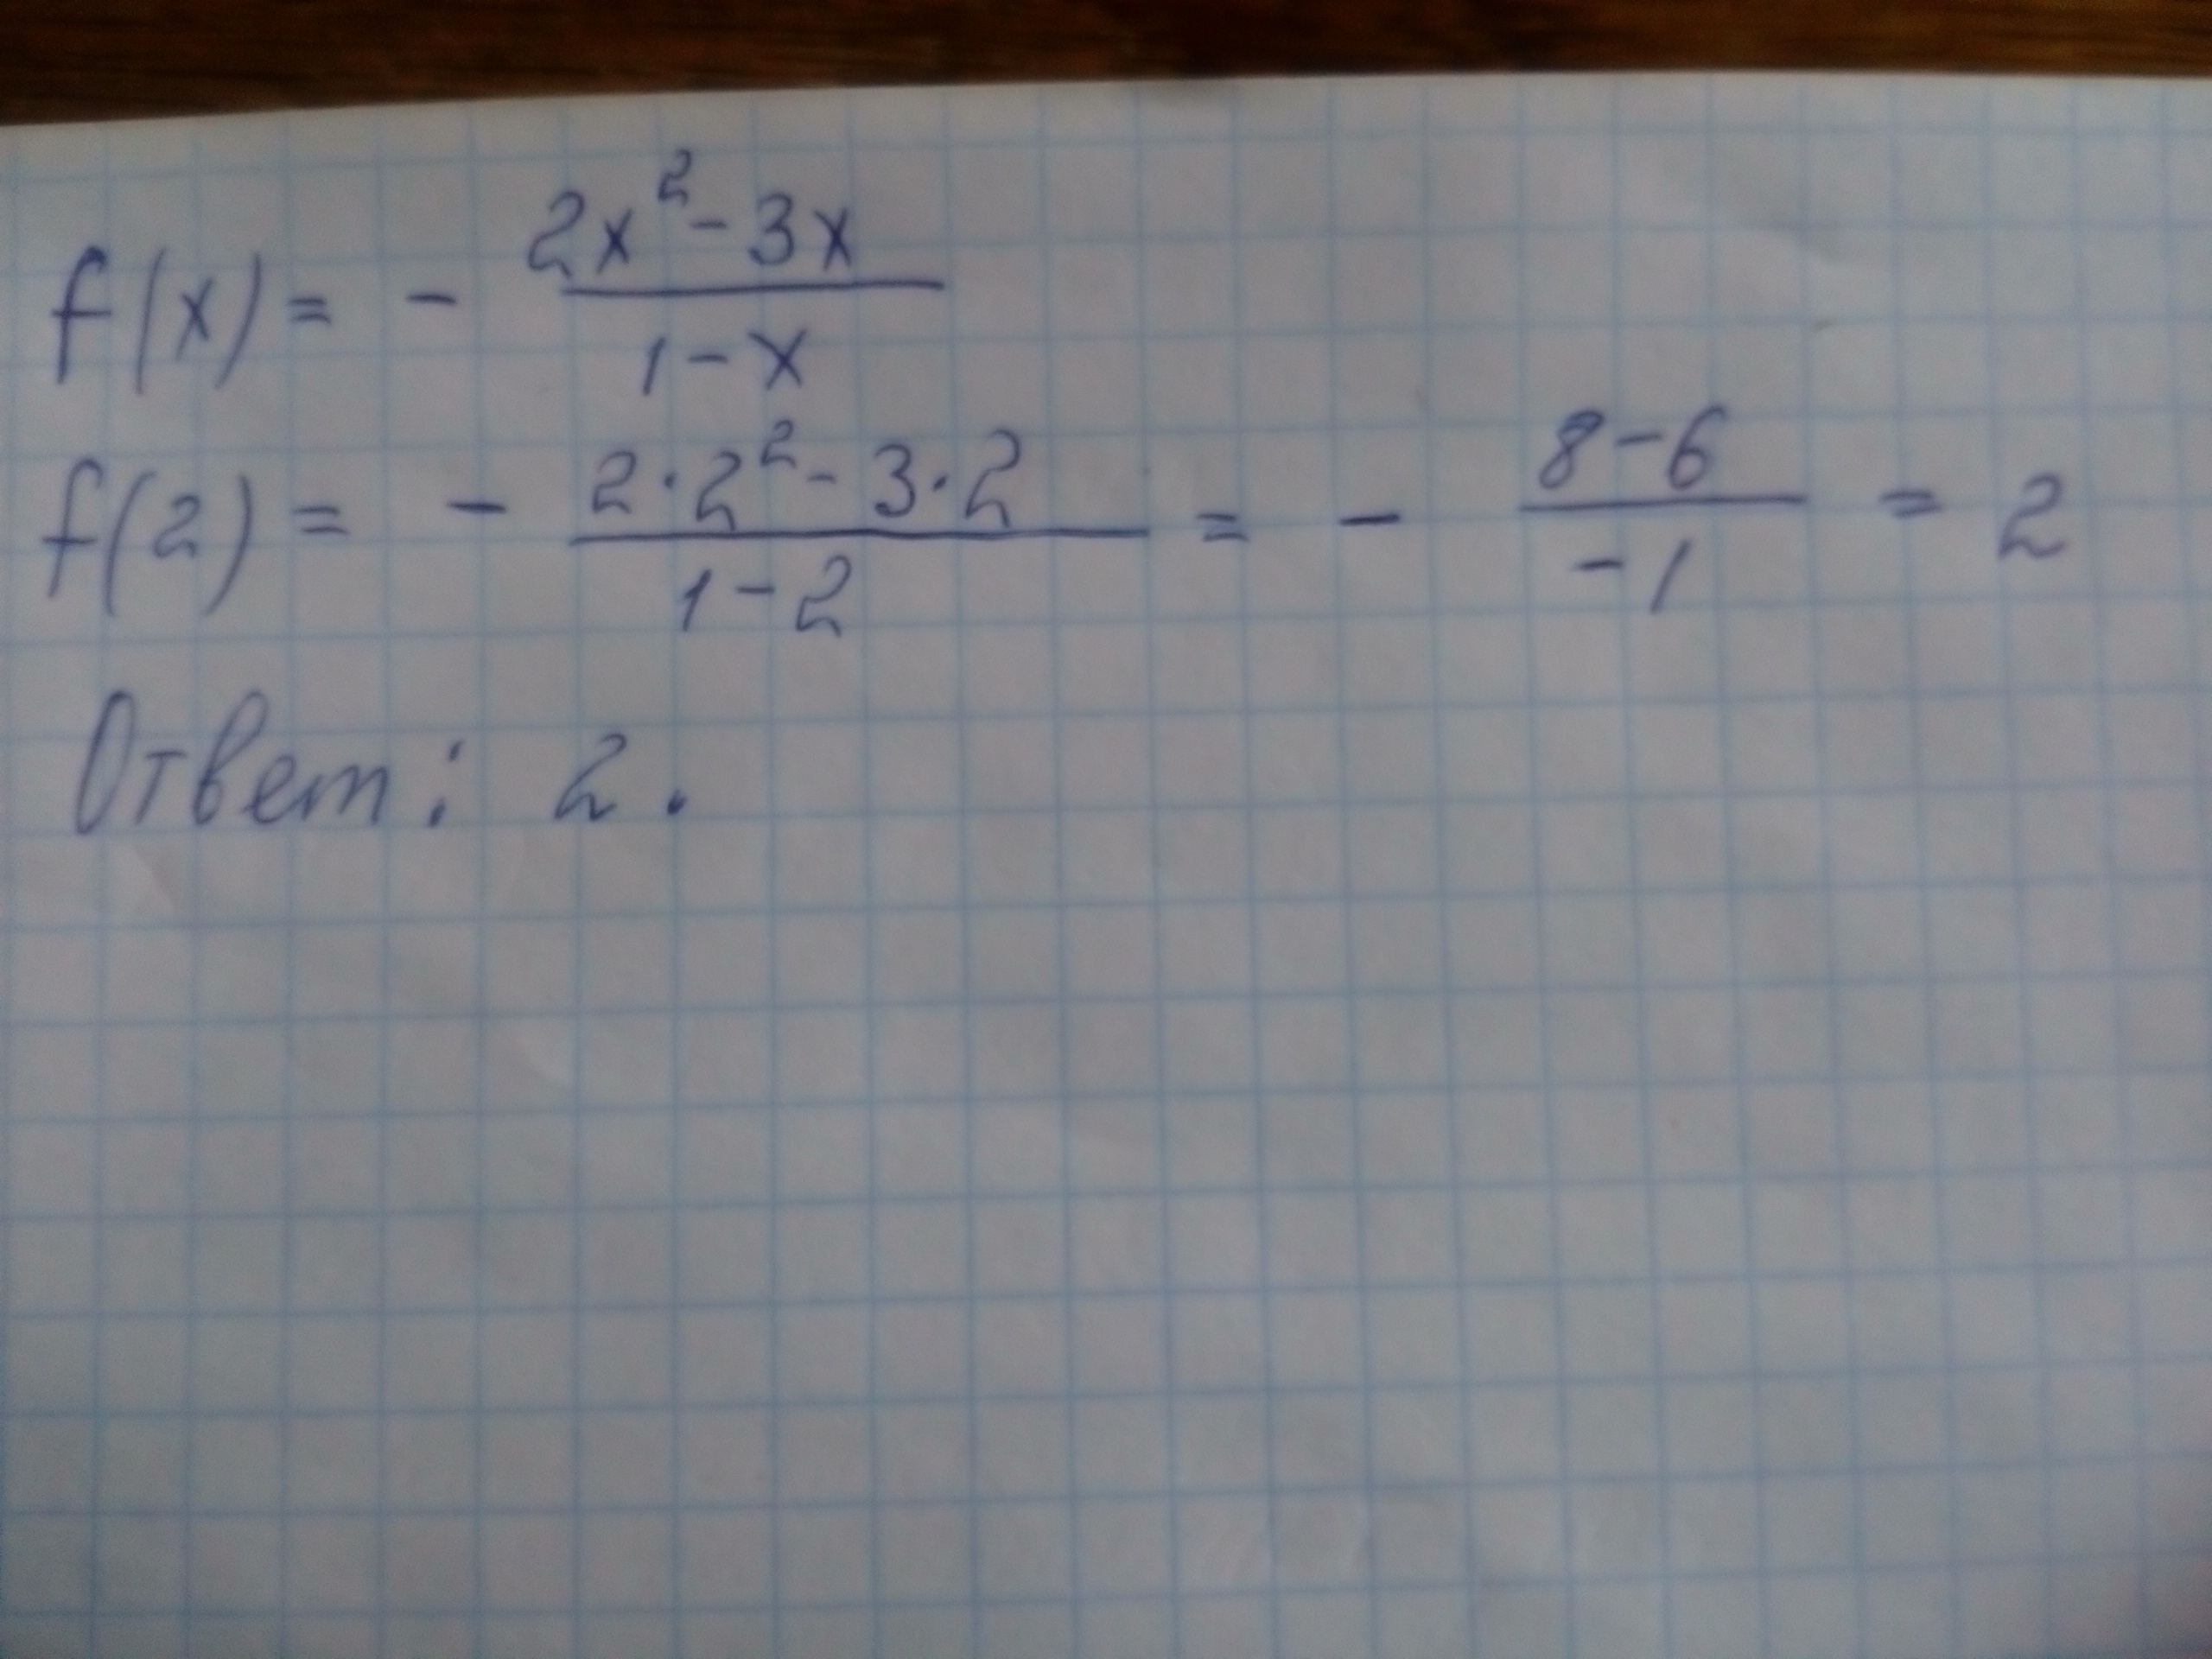 f(x) = - (2x² - 3x)/(1 - x)
f(2) = - (2·2² - 3·2)/(1 - 2) = - (8 - 6)/(-1) = 2
Ответ: 2.